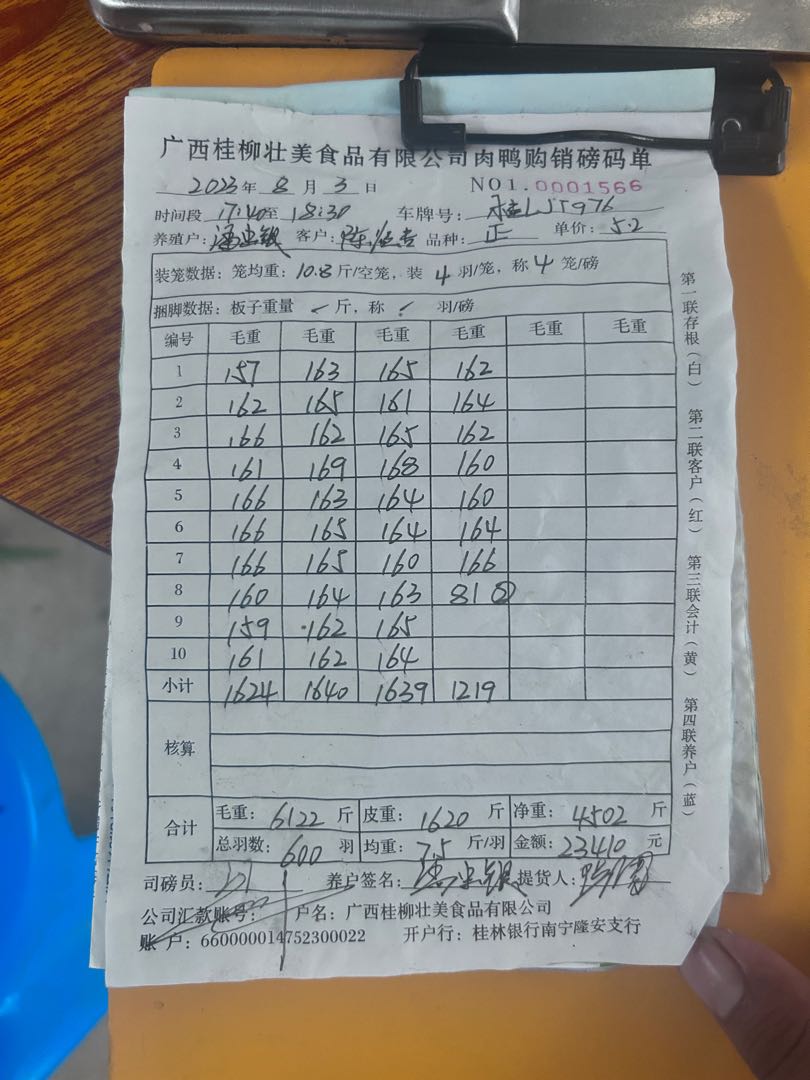 广西桂柳壮美食品有限公司肉鸭购销磅码单
2023年 8 月 3 日 NO1.0001566
时间段 17:40至 18:30 车牌号: 桂LJ5976
养殖户: 客户: 陈 品种: 正 单价: 5.2
装笼数据: 笼均重: 10.8 斤/空笼, 装 4 羽/笼, 称 4 笼/磅
捆脚数据: 板子重量 斤, 称 羽/磅
编号 毛重 毛重 毛重 毛重 毛重 毛重
1 157 163 165 162
2 162 165 161 164
3 166 162 165 162
4 161 169 168 160
5 166 163 164 160
6 166 165 164 164
7 166 165 160 166
8 160 164 163 81 ②
9 159 162 165
10 161 162 164
小计 1624 1640 1639 1219
核算
合计 毛重: 6122 斤 皮重: 1620 斤 净重: 4502 斤
总羽数: 600 羽 均重: 7.5 斤/羽 金额: 23410 元
司磅员: 养户签名: 提货人:
公司汇款账号: 户名: 广西桂柳壮美食品有限公司
账 户: 660000014752300022 开户行: 桂林银行南宁隆安支行
第一联存根(白) 第二联客户(红) 第三联会计(黄) 第四联养户(蓝)